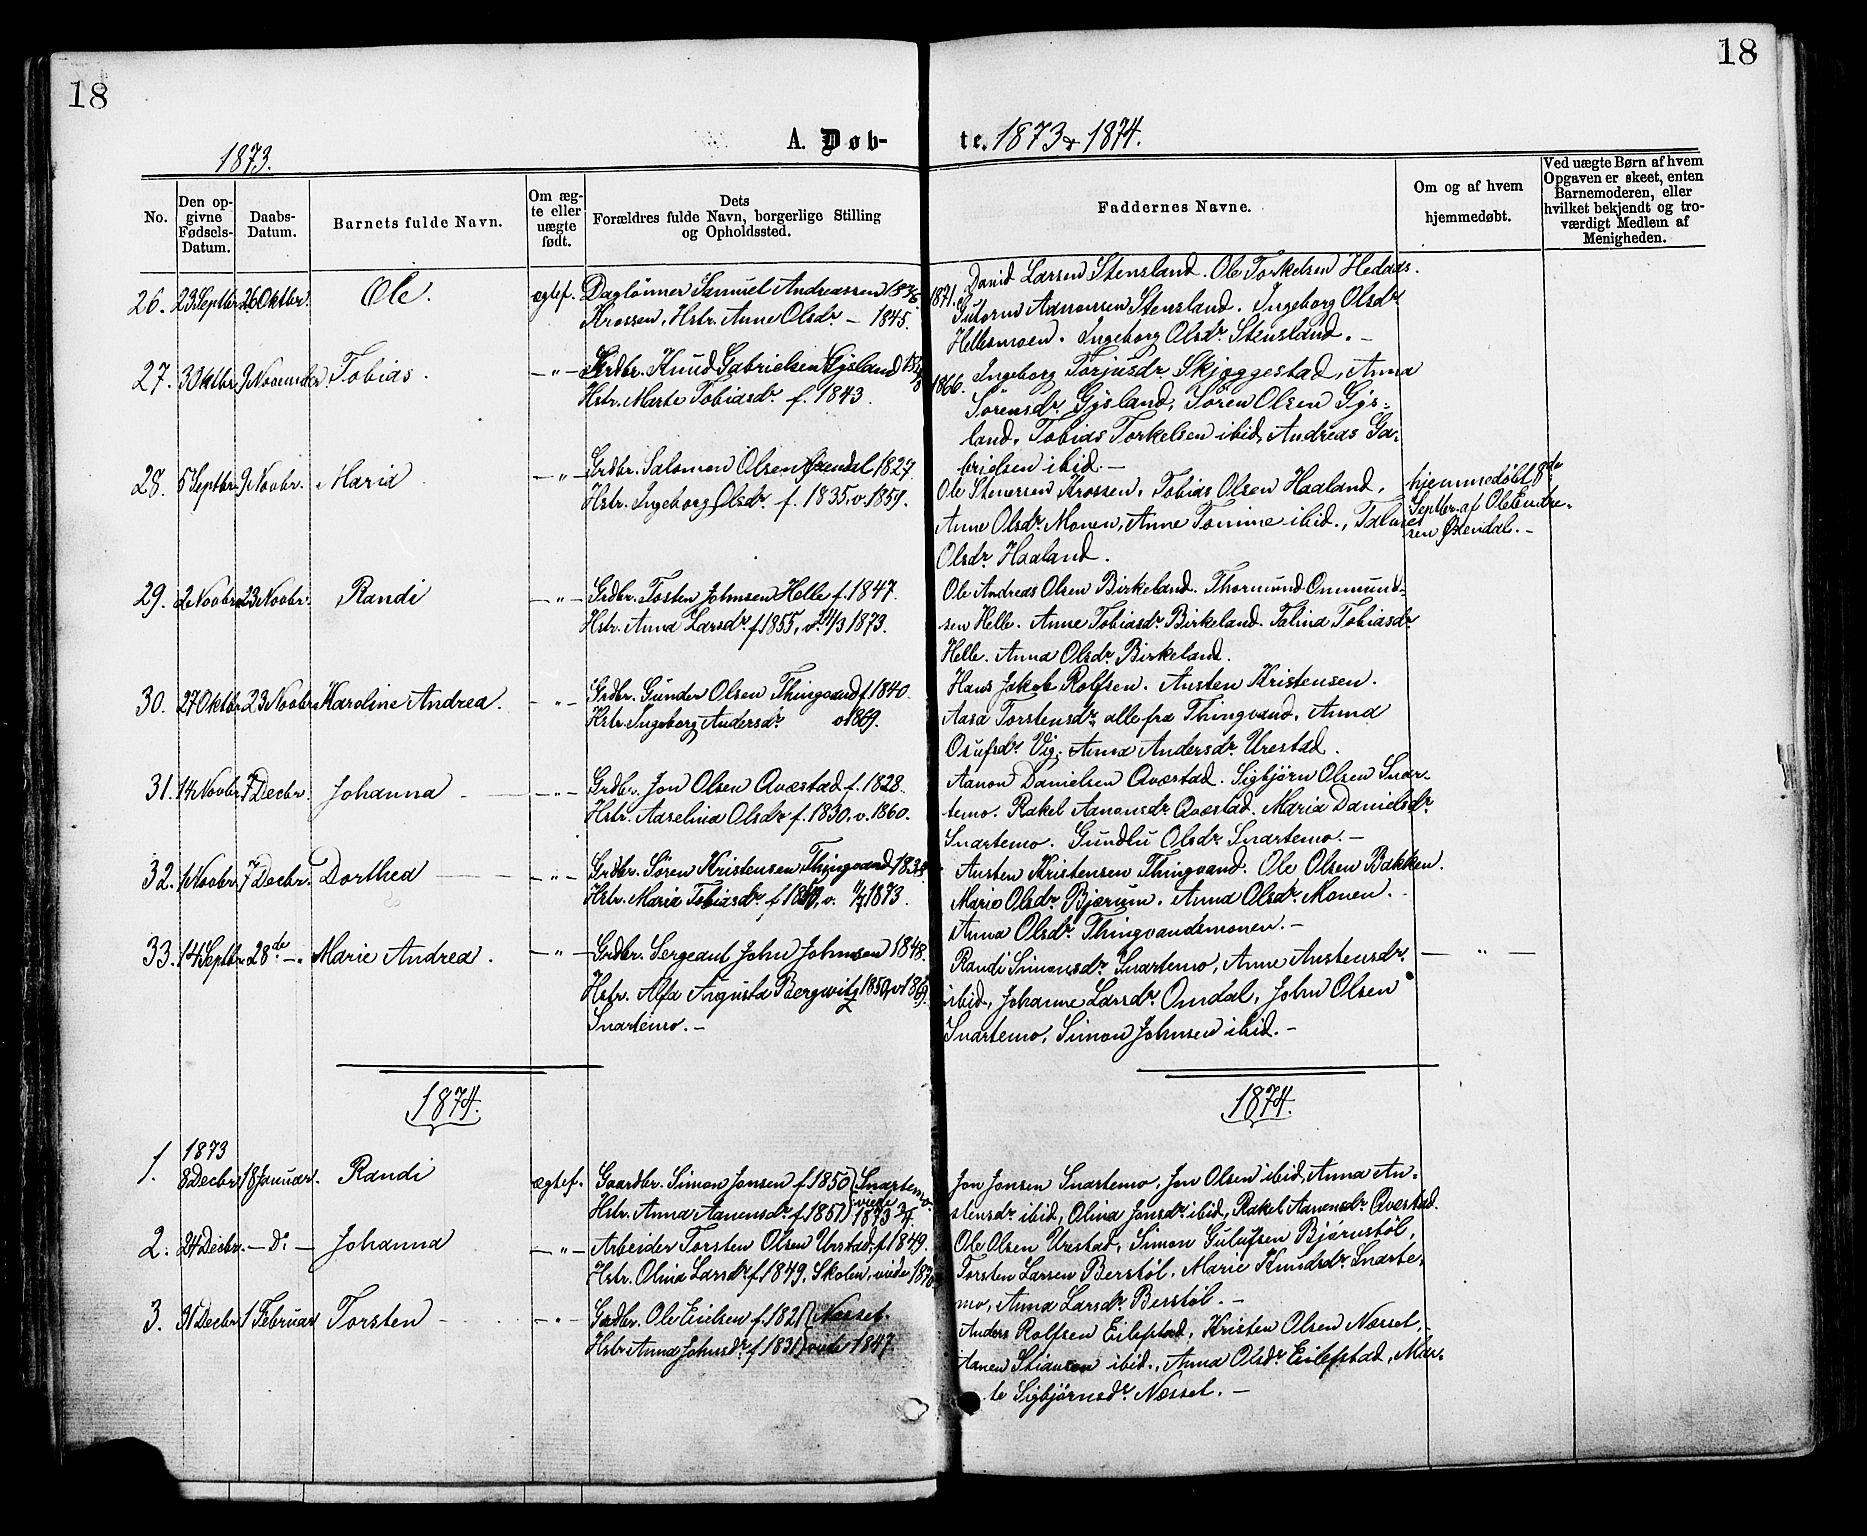 18
18
A. Døb-
te. 1873 & 1874.
1873.
No.
Den op-
givne
Fødsels-
Datum.
Daabs-
Datum.
Barnets fulde Navn.
Om æg-
te eller
uægte
født.
Dets
Forældres fulde Navn, borgerlige Stilling
og Opholdssted.
Faddernes Navne.
Om og af hvem
hjemmedøbt.
Ved uægte Børn af hvem
Opgaven er skeet, enten
Barnemoderen, eller
hvilket bekjendt og tro-
værdigt Medlem af
Menigheden.
26. 23 Septbr. 26 Oktbr. Ole. ægtef.
Daglønner Samuel Andreassen
Krossen, Hstr. Anne Olsdr. – 1845. 1871.
David Larsen Stensland. Ole Torkelsen Hedaas.
Gutorm Aanonsen Stensland. Ingeborg Olsdr.
Hellesmoen. Ingeborg Olsdr. Stensland. –
27. 3 Oktbr. 9 November. Tobias. – " –
Grdbr. Knud Gabrielsen Gjsland
Hstr. Marte Tobiasdr. f. 1843. 1866.
Ingeborg Torjusdr. Skjæggestad, Anna
Sørensdr. Gjsland, Søren Olsen Gjs-
land, Tobias Torkelsen ibid, Andreas Ga-
brielsen ibid. –
28. 5 Septbr. 9 Novbr. Maria – " –
Grdbr. Salomon Olsen Øxendal 1827.
Hstr. Ingeborg Olsdr. f. 1835, v. 1859.
Ole Stenersen Krossen, Tobias Olsen Haaland,
Anne Olsdr. Monen, Anne Tomine ibid.,
Olsdr. Haaland.
hjemmedøbt 8de
Septbr. af Ole Endre-
sen Øxendal. –
29. 2 Novbr. 23 Novbr. Randi – " –
Grdbr. Tosten Johnsen Helle f. 1847.
Hstr. Anna Larsdr. f 1855, v. 14/3 1873.
Ole Andreas Olsen Birkeland. Thormund Ommund-
sen Helle. Anne Tobiasdr. Birkeland. Talina Tobiasdr.
Helle. Anna Olsdr. Birkeland.
30. 27 Oktbr. 23 Novbr. Karoline Andrea. – " –
Grdbr. Gunder Olsen Thingvand f. 1840.
Hstr. Ingeborg Andersdr. v. 1869.
Hans Jakob Rolfsen. Austen Kristensen.
Aasa Torstensdr. alle fra Thingvand. Anna
Osufsdr. Vig. Anna Andersdr. Urestad.
31. 14 Novbr. 7 Decbr. Johanna – " –
Grdbr. Jon Olsen Qvæstad f. 1828.
Hstr. Aaselina Olsdr. f. 1830, v. 1860.
Aanon Danielsen Qvæstad. Sigbjørn Olsen Snar-
temo. Rakel Aanonsdr. Qvæstad. Maria Danielsdr.
Snartemo. Gundlu Olsdr. Snartemo. –
32. 1 Novbr. 7 Decbr. Dorthea – " –
Grdbr. Søren Kristensen Thingvand
Hstr. Maria Tobiasdr. v. 1873.
Austen Kristensen Thingvand. Ole Olsen Bakken.
Marie Olsdr. Bjærum. Anna Olsdr. Monen.
Anna Olsdr. Thingvandsmonen. –
33. 14 Septbr. 28de – " Marie Andrea. – " –
Grdbr. Sergeant John Johnsen 1848.
Hstr. Alfa Augusta Bergwitz 1850, v.
Snartemo. –
Randi Simonsdr. Snartemo, Anne Austensdr. – " –
ibid, Johanne Larsdr. Omdal, John Olsen
Snartemo, Simon Johnsen ibid. –
1874.
1874.
1873
1. 8 Decbr. 18 Januar. Randi ægtef.
Gaardbr. Simon Jonsen f. 1850 Snartemo.
Hstr. Anna Aanensdr. f. 1851 viede 1873
Jon Jonsen Snartemo, Jon Olsen ibid, Anna Au-
stensdr. ibid, Olina Jonsdr. ibid, Rakel Aanensdr. Qvæstad.
2. 24 Decbr. – Do – Johanna – " –
Arbeider Torsten Olsen Urstad, f. 1849.
Hstr. Olina Larsdr. f. 1849, Skolen, viede
Ole Olsen Urestad, Simon Gulufsen Bjørnstøl,
Torsten Larsen Berstøl. Marie Knudsdr. Snarte-
mo, Anna Larsdr. Berstøl. –
3. 31 Decbr. 1 Februar Torsten – " –
Grdbr. Ole Eielsen f. 1821 Næsset.
Hstr. Anna Johnsdr. f. 1831 viede 1847.
Anders Rolfsen Eilefstad, Kristen Olsen Næsset,
Aanen ibid., Anna Olsdr. Eilefstad, Mar-
te Sigbjørnsdr. Næsset. –